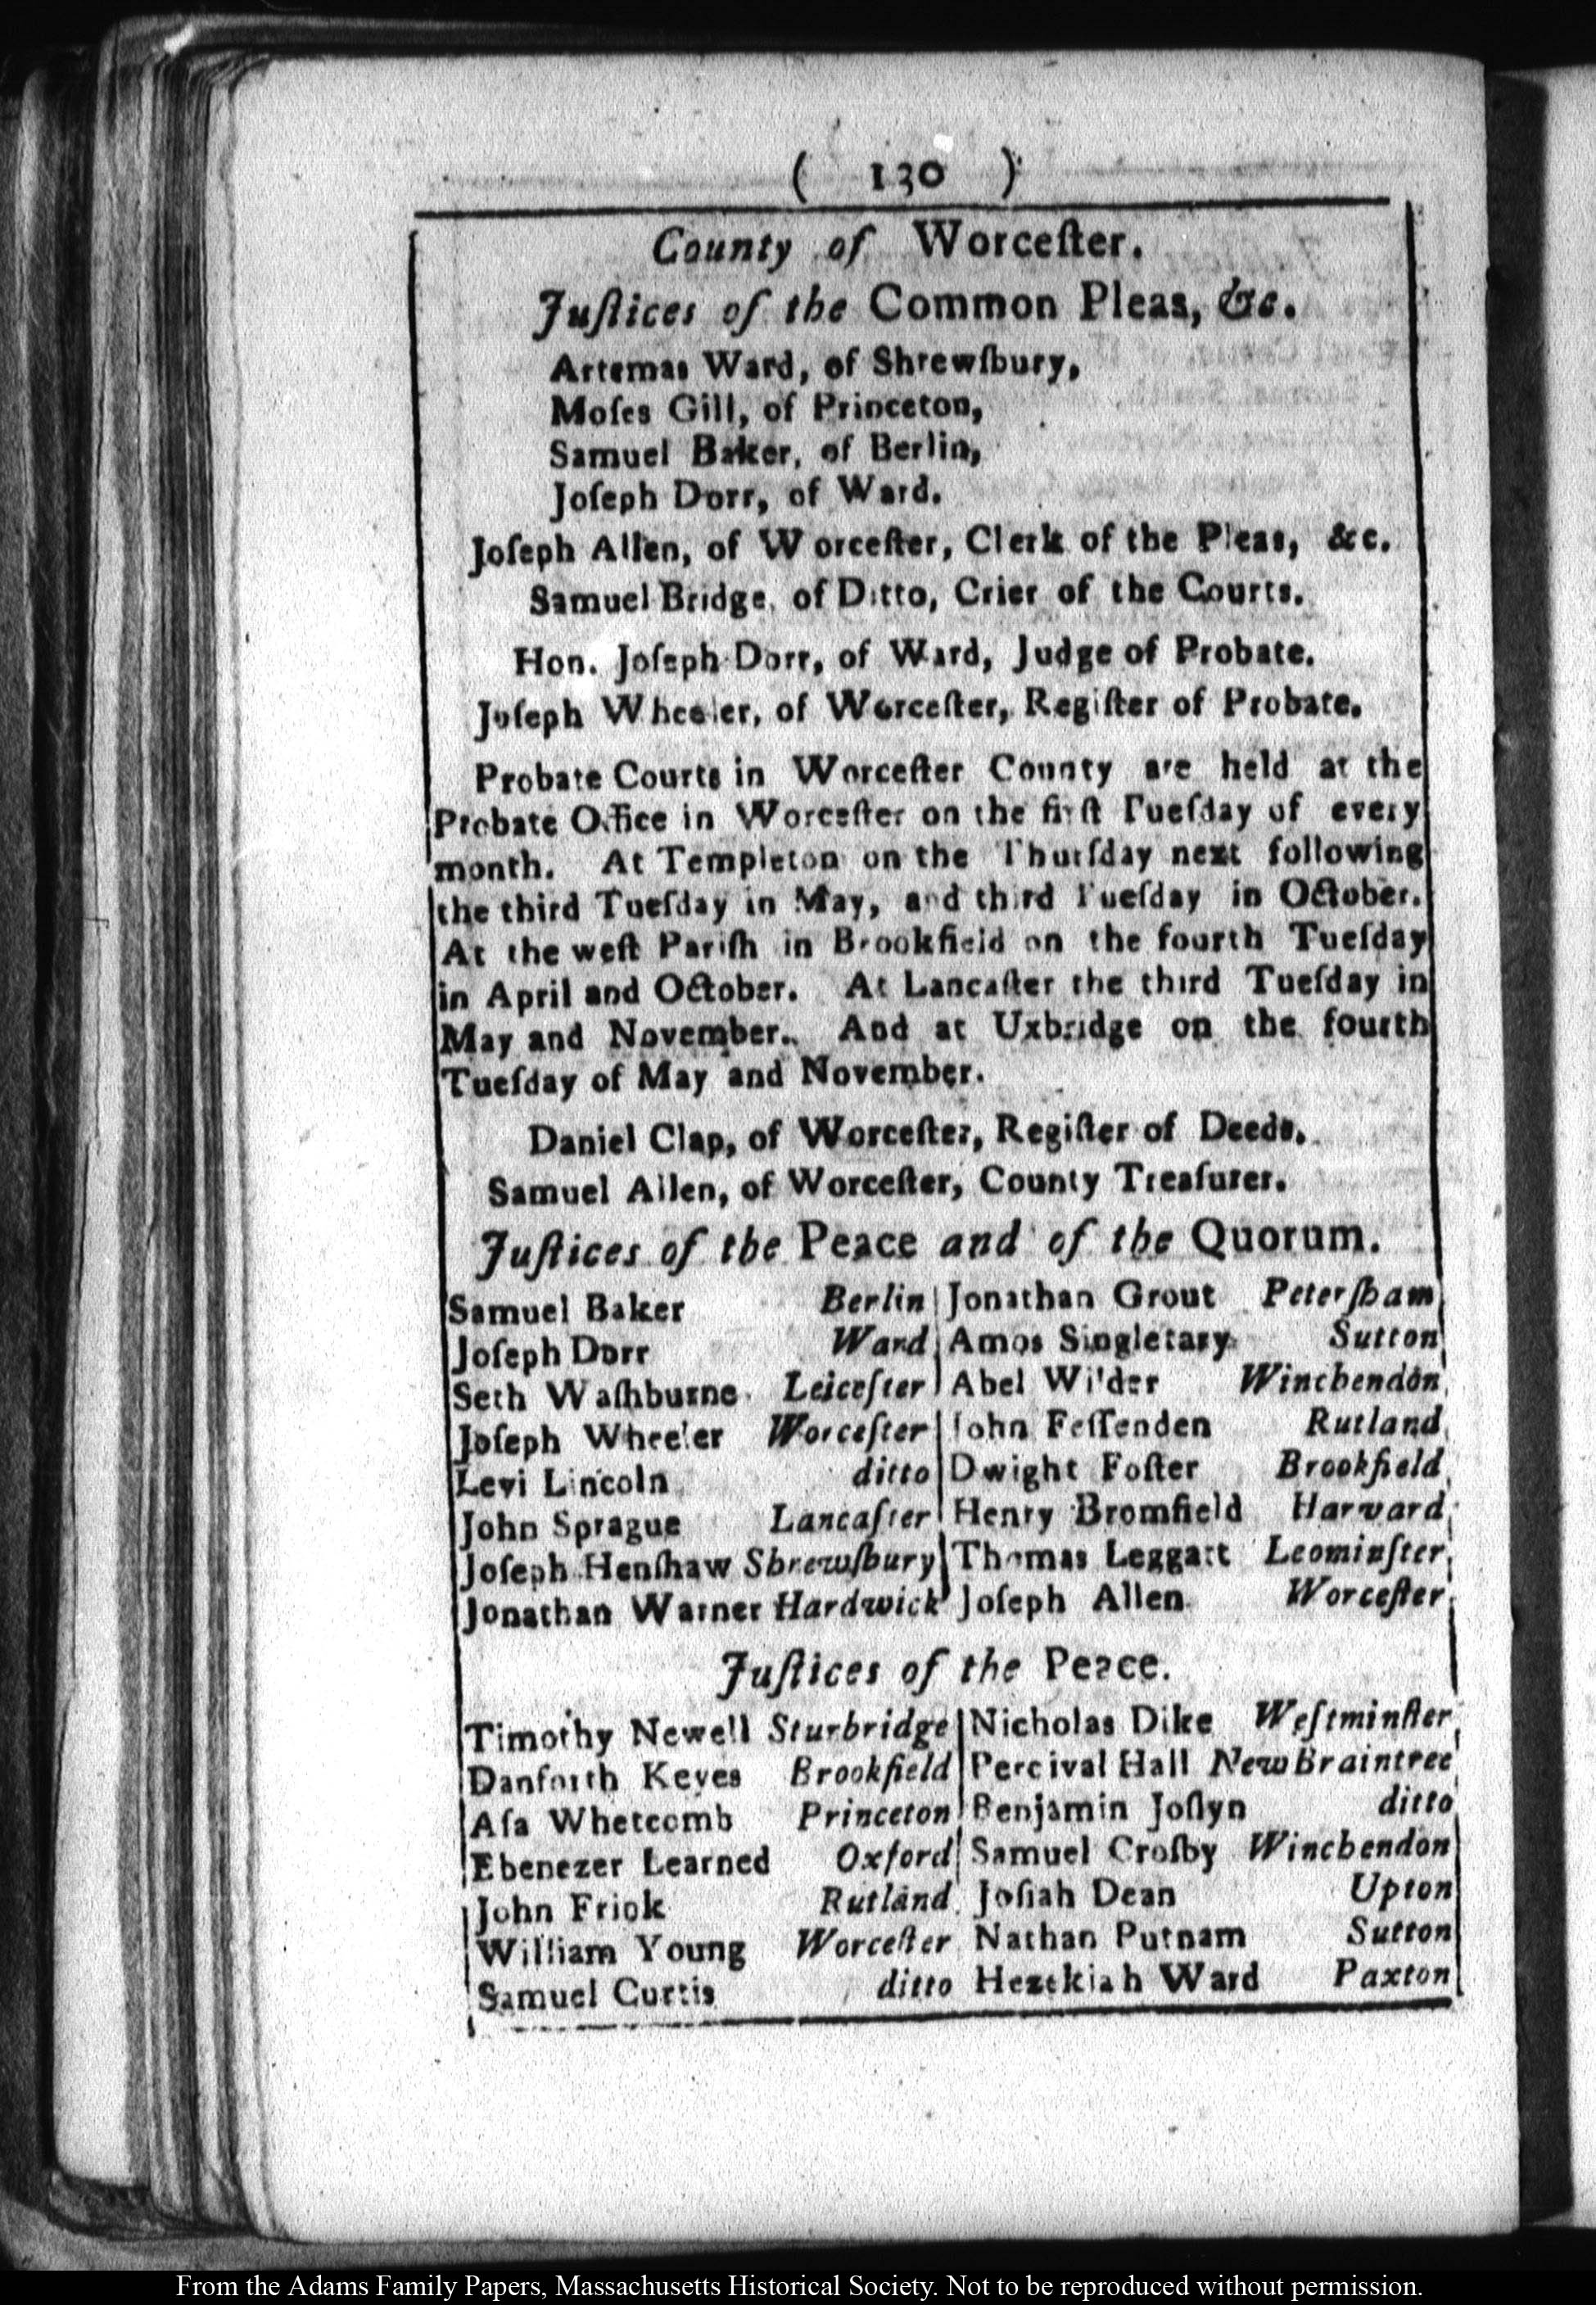 ( 130 )
County of Worceſter.
Juſtices of the Common Pleas, &c.
Artemas Ward, of Shrewſbury,
Moſes Gill, of Princeton,
Samuel Baker, of Berlin,
Joſeph Dorr, of Ward.
Joſeph Allen, of Worceſter, Clerk of the Pleas, &c.
Samuel Bridge, of Ditto, Crier of the Courts.
Hon. Joſeph Dorr, of Ward, Judge of Probate.
Joſeph Wheeler, of Worceſter, Regiſter of Probate.
Probate Courts in Worceſter County are held at the
Probate Office in Worceſter on the firſt Tueſday of every
month. At Templeton on the Thurſday next following
the third Tueſday in May, and third Tueſday in October.
At the weſt Pariſh in Brookfield on the fourth Tueſday
in April and October. At Lancaſter the third Tueſday in
May and November. And at Uxbridge on the fourth
Tueſday of May and November.
Daniel Clap, of Worceſter, Regiſter of Deeds.
Samuel Allen, of Worceſter, County Treaſurer.
Juſtices of the Peace and of the Quorum.
Samuel Baker Berlin | Jonathan Grout Peterſham
Joſeph Dorr Ward | Amos Singletary Sutton
Seth Waſhburne Leiceſter | Abel Wilder Winchendon
Joſeph Wheeler Worceſter | John Feſſenden Rutland
Levi Lincoln ditto | Dwight Foſter Brookfield
John Sprague Lancaſter | Henry Bromfield Harvard
Joſeph Henſhaw Shrewſbury | Thomas Leggatt Leominſter
Jonathan Warner Hardwick | Joſeph Allen Worceſter
Juſtices of the Peace.
Timothy Newell Sturbridge | Nicholas Dike Weſtminſter
Danforth Keyes Brookfield | Percival Hall New Braintree
Aſa Whetcomb Princeton | Benjamin Joſlyn ditto
Ebenezer Learned Oxford | Samuel Croſby Winchendon
John Frink Rutland | Joſiah Dean Upton
William Young Worceſter | Nathan Putnam Sutton
Samuel Curtis ditto | Hezekiah Ward Paxton
From the Adams Family Papers, Massachusetts Historical Society. Not to be reproduced without permission.